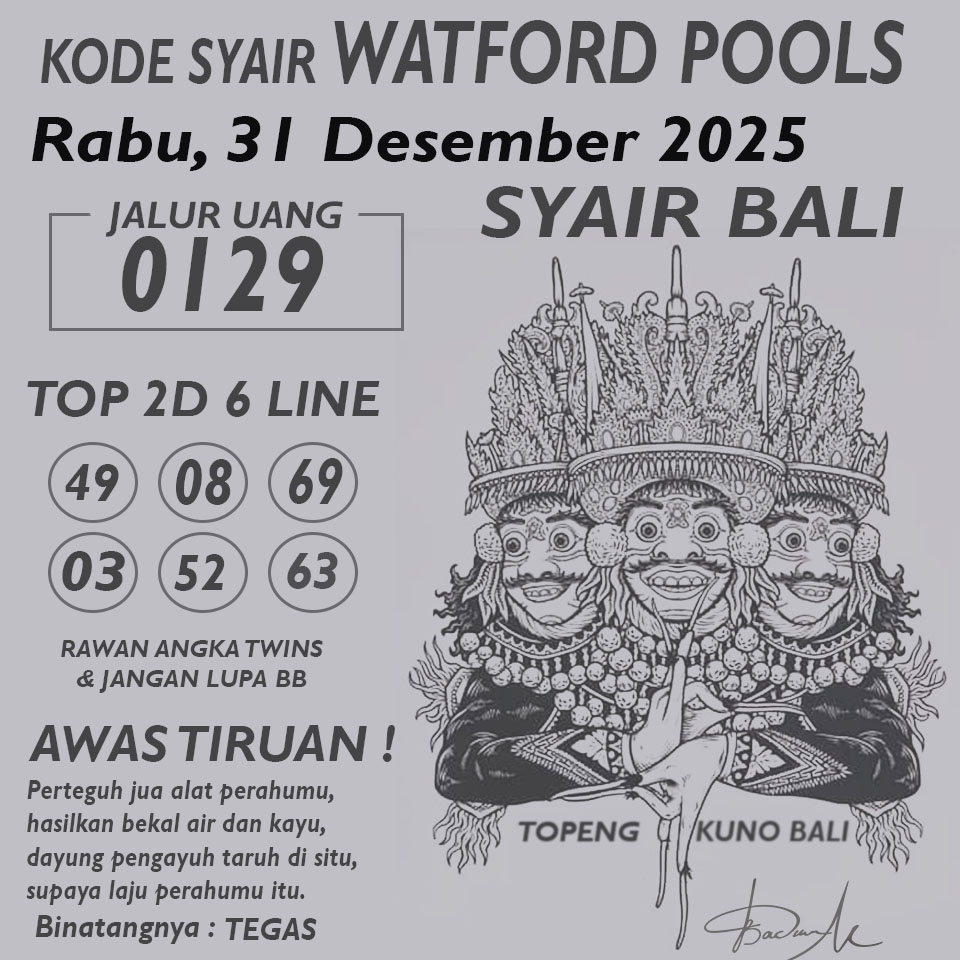 KODE SYAIR WATFORD POOLS
Rabu, 31 Desember 2025
SYAIR BALI
JALUR UANG
0129
TOP 2D 6 LINE
49 08 69
03 52 63
RAWAN ANGKA TWINS
& JANGAN LUPA BB
AWAS TIRUAN !
Perteguh jua alat perahumu,
hasilkan bekal air dan kayu,
dayung pengayuh taruh di situ,
supaya laju perahumu itu.
Binatangnya : TEGAS
TOPENG KUNO BALI